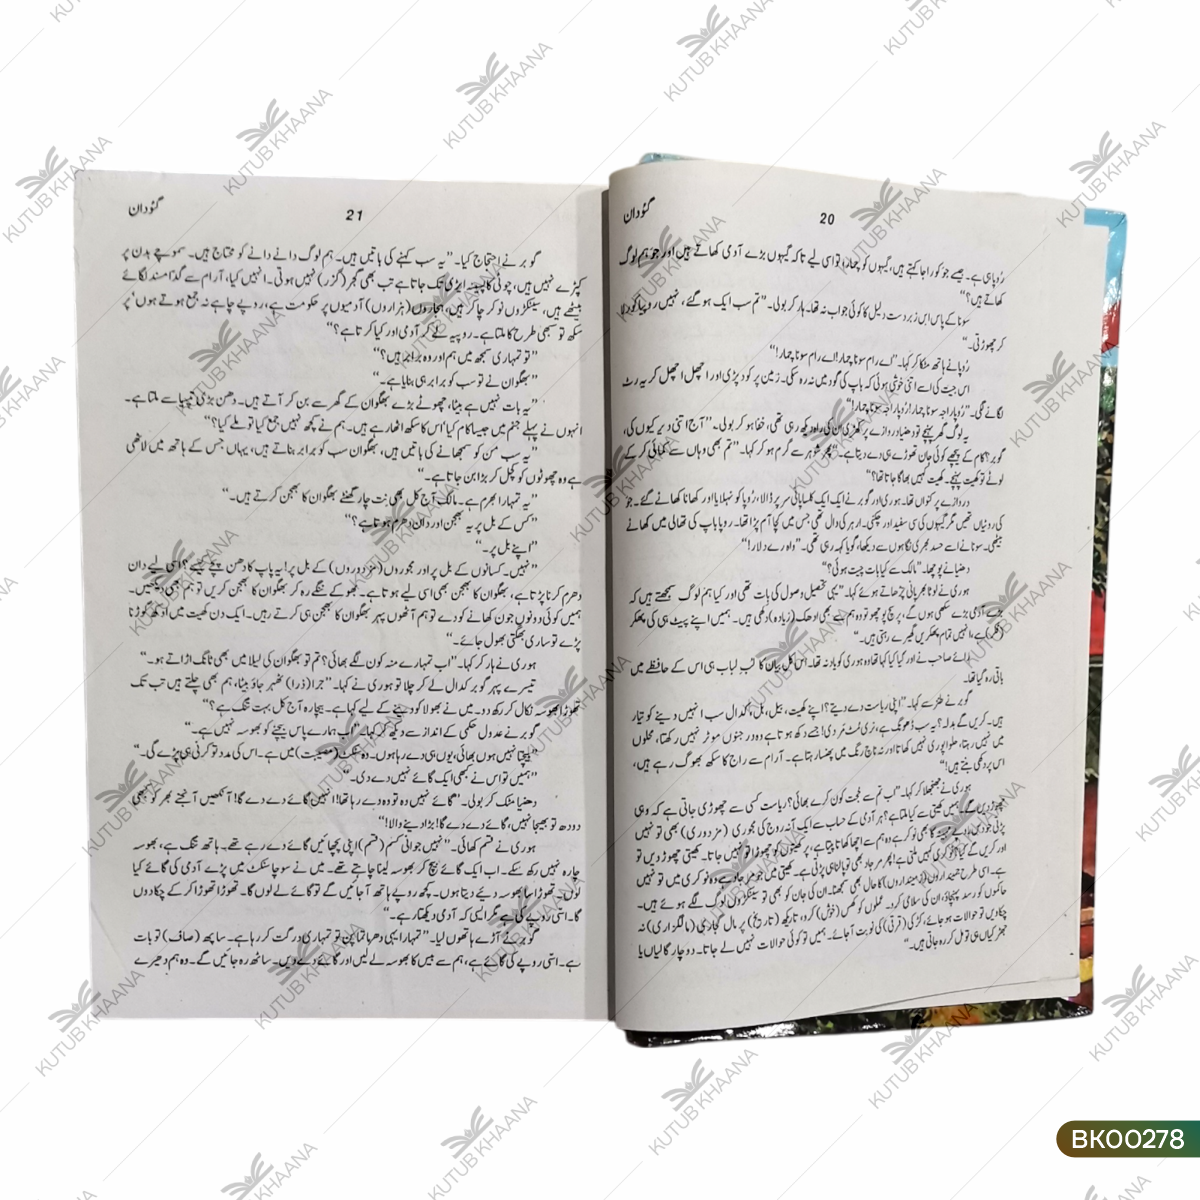 20
گئودان
رُوپا ہی ہے۔ جیسے جو کو راجا کہتے ہیں، گیہوں کو چمار، تو اسی لیے تاکہ گیہوں بڑے آدمی کھاتے ہیں اور جو ہم لوگ
کھاتے ہیں؟“
سونا کے پاس اس زبردست دلیل کا کوئی جواب نہ تھا۔ ہار کر بولی۔ ”تم سب ایک ہو گئے، نہیں روپیا کو رلا
کر چھوڑتی۔“
رُوپا نے ہاتھ مٹکا کر کہا۔ ”اے رام سونا چمار! اے رام سونا چمار!“
اس جیت کی اسے اتنی خوشی ہوئی کہ باپ کی گود میں نہ رہ سکی۔ زمین پر کود پڑی اور اچھل اچھل کر یہ رٹ
لگانے لگی۔ ”رُوپا راجہ سونا چمار! رُوپا راجہ سونا چمار!“
یہ لوگ گھر پہنچے تو دھنیا دروازے پر کھڑی ان کی راہ دیکھ رہی تھی، خفا ہو کر بولی۔ ”آج اتنی دیر کیوں کی،
گوبر؟ کام کے پیچھے کوئی جان تھوڑے ہی دے دیتا ہے۔“ پھر شوہر سے گرم ہو کر کہا۔ ”تم بھی وہاں سے کمائی کر کے
لوٹے تو کھیت پہنچے۔ کھیت کہیں بھاگا جاتا تھا؟“
دروازے پر کنواں تھا۔ ہوری اور گوبر نے ایک ایک کلسا پانی سر پر ڈالا، رُوپا کو نہلایا اور کھانا کھانے گئے۔ جو
کی روٹیاں تھیں مگر گیہوں کی سی سفید اور چکنی۔ ارہر کی دال تھی جس میں کچا آم پڑا تھا۔ روپا باپ کی تھالی میں کھانے
بیٹھی۔ سونا نے اسے حسد بھری نگاہوں سے دیکھا، گویا کہہ رہی تھی۔ ”واہ رے دلار!“
دھنیا نے پوچھا۔ ”مالک سے کیا بات چیت ہوئی؟“
ہوری نے لوٹا بھر پانی چڑھاتے ہوئے کہا۔ ”یہی تحصیل وصول کی بات تھی اور کیا ہم لوگ سمجھتے ہیں کہ
بڑے آدمی بڑے سکھی ہوں گے، پر سچ پوچھو تو وہ ہم سے بھی اَدھک (زیادہ) دکھی ہیں۔ ہمیں اپنے پیٹ ہی کی پھکر
(فکر) ہے، انہیں تمام پھکریں گھیرے رہتی ہیں۔“
رائے صاحب نے اور کیا کیا کہا تھا وہ ہوری کو یاد نہ تھا۔ اس کل بیان کا لب لباب ہی اس کے حافظے میں
باقی رہ گیا تھا۔
گوبر نے طنز سے کہا۔ ”اپنی ریاست دے دیتے؟ اپنے کھیت، بیل، ہل، کدال سب انہیں دینے کو تیار
ہیں۔ کریں گے بدلہ؟ یہ سب ڈھونگ ہے، نری مٹ مردی! جسے دکھ ہوتا ہے وہ درجنوں موٹر نہیں رکھتا، محلوں
میں نہیں رہتا، حلوا پوری نہیں کھاتا اور نہ ناچ رنگ میں پھنسا رہتا ہے۔ آرام سے راج کا سکھ بھوگ رہے ہیں،
اس پر دکھی بنتے ہیں!“
ہوری نے جھنجھلا کر کہا۔ ”اب تم سے حجت کون کرے بھائی؟ ریاست کسی سے چھوڑی جاتی ہے کہ وہی
چھوڑ دیں گے۔ ہمیں کھیتی سے کیا ملتا ہے؟ ہر آدمی کے حساب سے ایک آنہ روج کی مجوری (مزدوری) بھی تو نہیں
پڑتی جو دس روپے مہینہ کا بھی نوکر ہے وہ ہم سے اچھا کھاتا پیتا ہے، پر کھیتوں کو چھوڑا تو نہیں جاتا۔ کھیتی چھوڑ دیں تو
اور کریں گے کیا؟ نوکری کہیں ملتی ہے؟ پھر مرجاد بھی تو پالنا ہی پڑتی ہے۔ کھیتی میں جو مرجاد ہے وہ نوکری میں تو نہیں
ہے۔ اسی طرح جمینداروں (زمینداروں) کا حال بھی سمجھنا۔ ان کی جان کو بھی تو سینکڑوں لوگ لگے ہوئے ہیں۔
حاکموں کو رسد پہنچاؤ، ان کی سلامی کرو۔ عملوں کو کھس (خوش) کرو، تاریکھ (تاریخ) پر مال گجاری (مالگزاری) نہ
چکا دیں تو حوالات ہو جائے، کڑکی (قرقی) کی نوبت آ جائے۔ ہمیں تو کوئی حوالات نہیں لے جاتا۔ دو چار گالیاں یا
جھڑکیاں ہی تو مل کر رہ جاتی ہیں۔“
21
گئودان
گوبر نے احتجاج کیا۔ ”یہ سب کہنے کی باتیں ہیں۔ ہم لوگ دانے دانے کو محتاج ہیں۔ سموچے بدن پر
کپڑے نہیں ہیں، چوٹی کا پسینہ ایڑی تک جاتا ہے تب بھی گجر (گزر) نہیں ہوتی۔ انہیں کیا، آرام سے گدا مسند لگائے
بیٹھے ہیں، سینکڑوں نوکر چاکر ہیں، ہجاروں (ہزاروں) آدمیوں پر حکومت ہے، روپے چاہے نہ جمع ہوتے ہوں پر
سکھ تو سبھی طرح کا ملتا ہے۔ روپیہ لے کر آدمی اور کیا کرتا ہے؟“
”تو تمہاری سمجھ میں ہم اور وہ برابر ہیں؟“
”بھگوان نے تو سب کو برابر ہی بنایا ہے۔“
”یہ بات نہیں ہے بیٹا، چھوٹے بڑے بھگوان کے گھر سے بن کر آتے ہیں۔ دھن بڑی تپسیا سے ملتا ہے۔
انہوں نے پہلے جنم میں جیسا کام کیا اُس کا سکھ اٹھا رہے ہیں۔ ہم نے کچھ نہیں جمع کیا تو ملے کیا؟“
”یہ سب من کو سمجھانے کی باتیں ہیں، بھگوان سب کو برابر بناتے ہیں، یہاں جس کے ہاتھ میں لاٹھی
ہے وہ چھوٹوں کو کچل کر بڑا بن جاتا ہے۔“
”یہ تمہارا بھرم ہے۔ مالک آج کل بھی نت چار گھنٹے بھگوان کا بھجن کرتے ہیں۔“
”کس کے بل پر یہ بھجن اور دان دھرم ہوتا ہے؟“
”اپنے بل پر۔“
”نہیں۔ کسانوں کے بل پر اور مجوروں (مزدوروں) کے بل پر! یہ پاپ کا دھن پچے کیسے؟ اسی لیے دان
دھرم کرنا پڑتا ہے، بھگوان کا بھجن بھی اسی لیے ہوتا ہے۔ بھوکے ننگے رہ کر بھگوان کا بھجن کریں تو ہم بھی دیکھیں۔
ہمیں کوئی دونوں جون کھانے کو دے تو ہم آٹھوں پہر بھگوان کا بھجن ہی کرتے رہیں۔ ایک دن کھیت میں اوکھ گوڑنا
پڑے تو ساری بھگتی بھول جائے۔“
ہوری نے ہار کر کہا۔ ”اب تمہارے منہ کون لگے بھائی؟ تم تو بھگوان کی لیلا میں بھی ٹانگ اڑاتے ہو۔“
تیسرے پہر گوبر کدال لے کر چلا تو ہوری نے کہا۔ ”جرا (ذرا) ٹھہر جاؤ بیٹا، ہم بھی چلتے ہیں تب تک
تھوڑا بھوسہ نکال کر رکھ دو۔ میں نے بھولا کو دینے کے لیے کہا ہے۔ بیچارہ آج کل بہت تنگ ہے؟“
گوبر نے عدول حکمی کے انداز سے دیکھ کر کہا۔ ”اب ہمارے پاس بیچنے کو بھوسہ نہیں ہے۔“
”بیچتا نہیں ہوں بھائی، یوں ہی دے رہا ہوں۔ وہ سنکٹ (مصیبت) میں ہے۔ اس کی مدد تو کرنی ہی پڑے گی۔“
”ہمیں تو اس نے کبھی ایک گائے نہیں دے دی۔“
دھنیا مٹک کر بولی۔ ”گائے نہیں وہ تو وہ دے رہا تھا! انہیں گائے دے دے گا! آنکھیں آنجنے بھر کو کبھی
دودھ تو بھیجا نہیں، گائے دے دے گا! بڑا دینے والا!“
ہوری نے قسم کھائی۔ ”نہیں جوانی کسم (قسم) اپنی پچھائیں گائے دے رہے تھے۔ ہاتھ تنگ ہے، بھوسہ
چارہ نہیں رکھ سکے۔ اب ایک گائے بیچ کر بھوسہ لینا چاہتے تھے۔ میں نے سوچا سنکٹ میں پڑے آدمی کی گائے کیا
لوں۔ تھوڑا سا بھوسہ دیئے دیتا ہوں۔ کچھ روپے ہاتھ آ جائیں گے تو گائے لے لوں گا۔ تھوڑا تھوڑا کر کے چکا دوں
گا۔ اسّی روپے کی ہے مگر ایسی کہ آدمی دیکھتا رہے۔“
گوبر نے آڑے ہاتھوں لیا۔ ”تمہارا یہی دھرماتما پن تو تمہاری درگت کر رہا ہے۔ ساپھ (صاف) تو بات
ہے۔ اسّی روپے کی گائے ہے، ہم سے بیس کا بھوسہ لے لیں اور گائے دے دیں۔ ساٹھ رہ جائیں گے۔ وہ ہم دھیرے
KUTUB KHAANA
BK00278